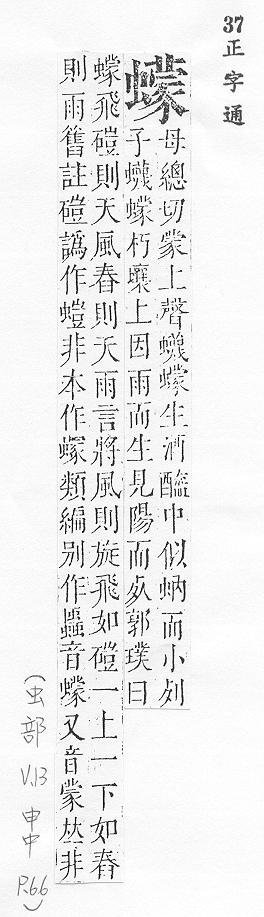 37正字通
蠓
母總切蒙上聲蠛蠓生酒醯中似蚋而小列
子蠛蠓朽壤上因雨而生見陽而死郭璞曰
蠓飛磑則天風舂則天雨言將風則旋飛如磑一上一下如舂
則雨舊註磑譌作螘非本作蠓類編別作䗈音蠓又音蒙𠀤非
(虫部 V.13 申中 P.66)